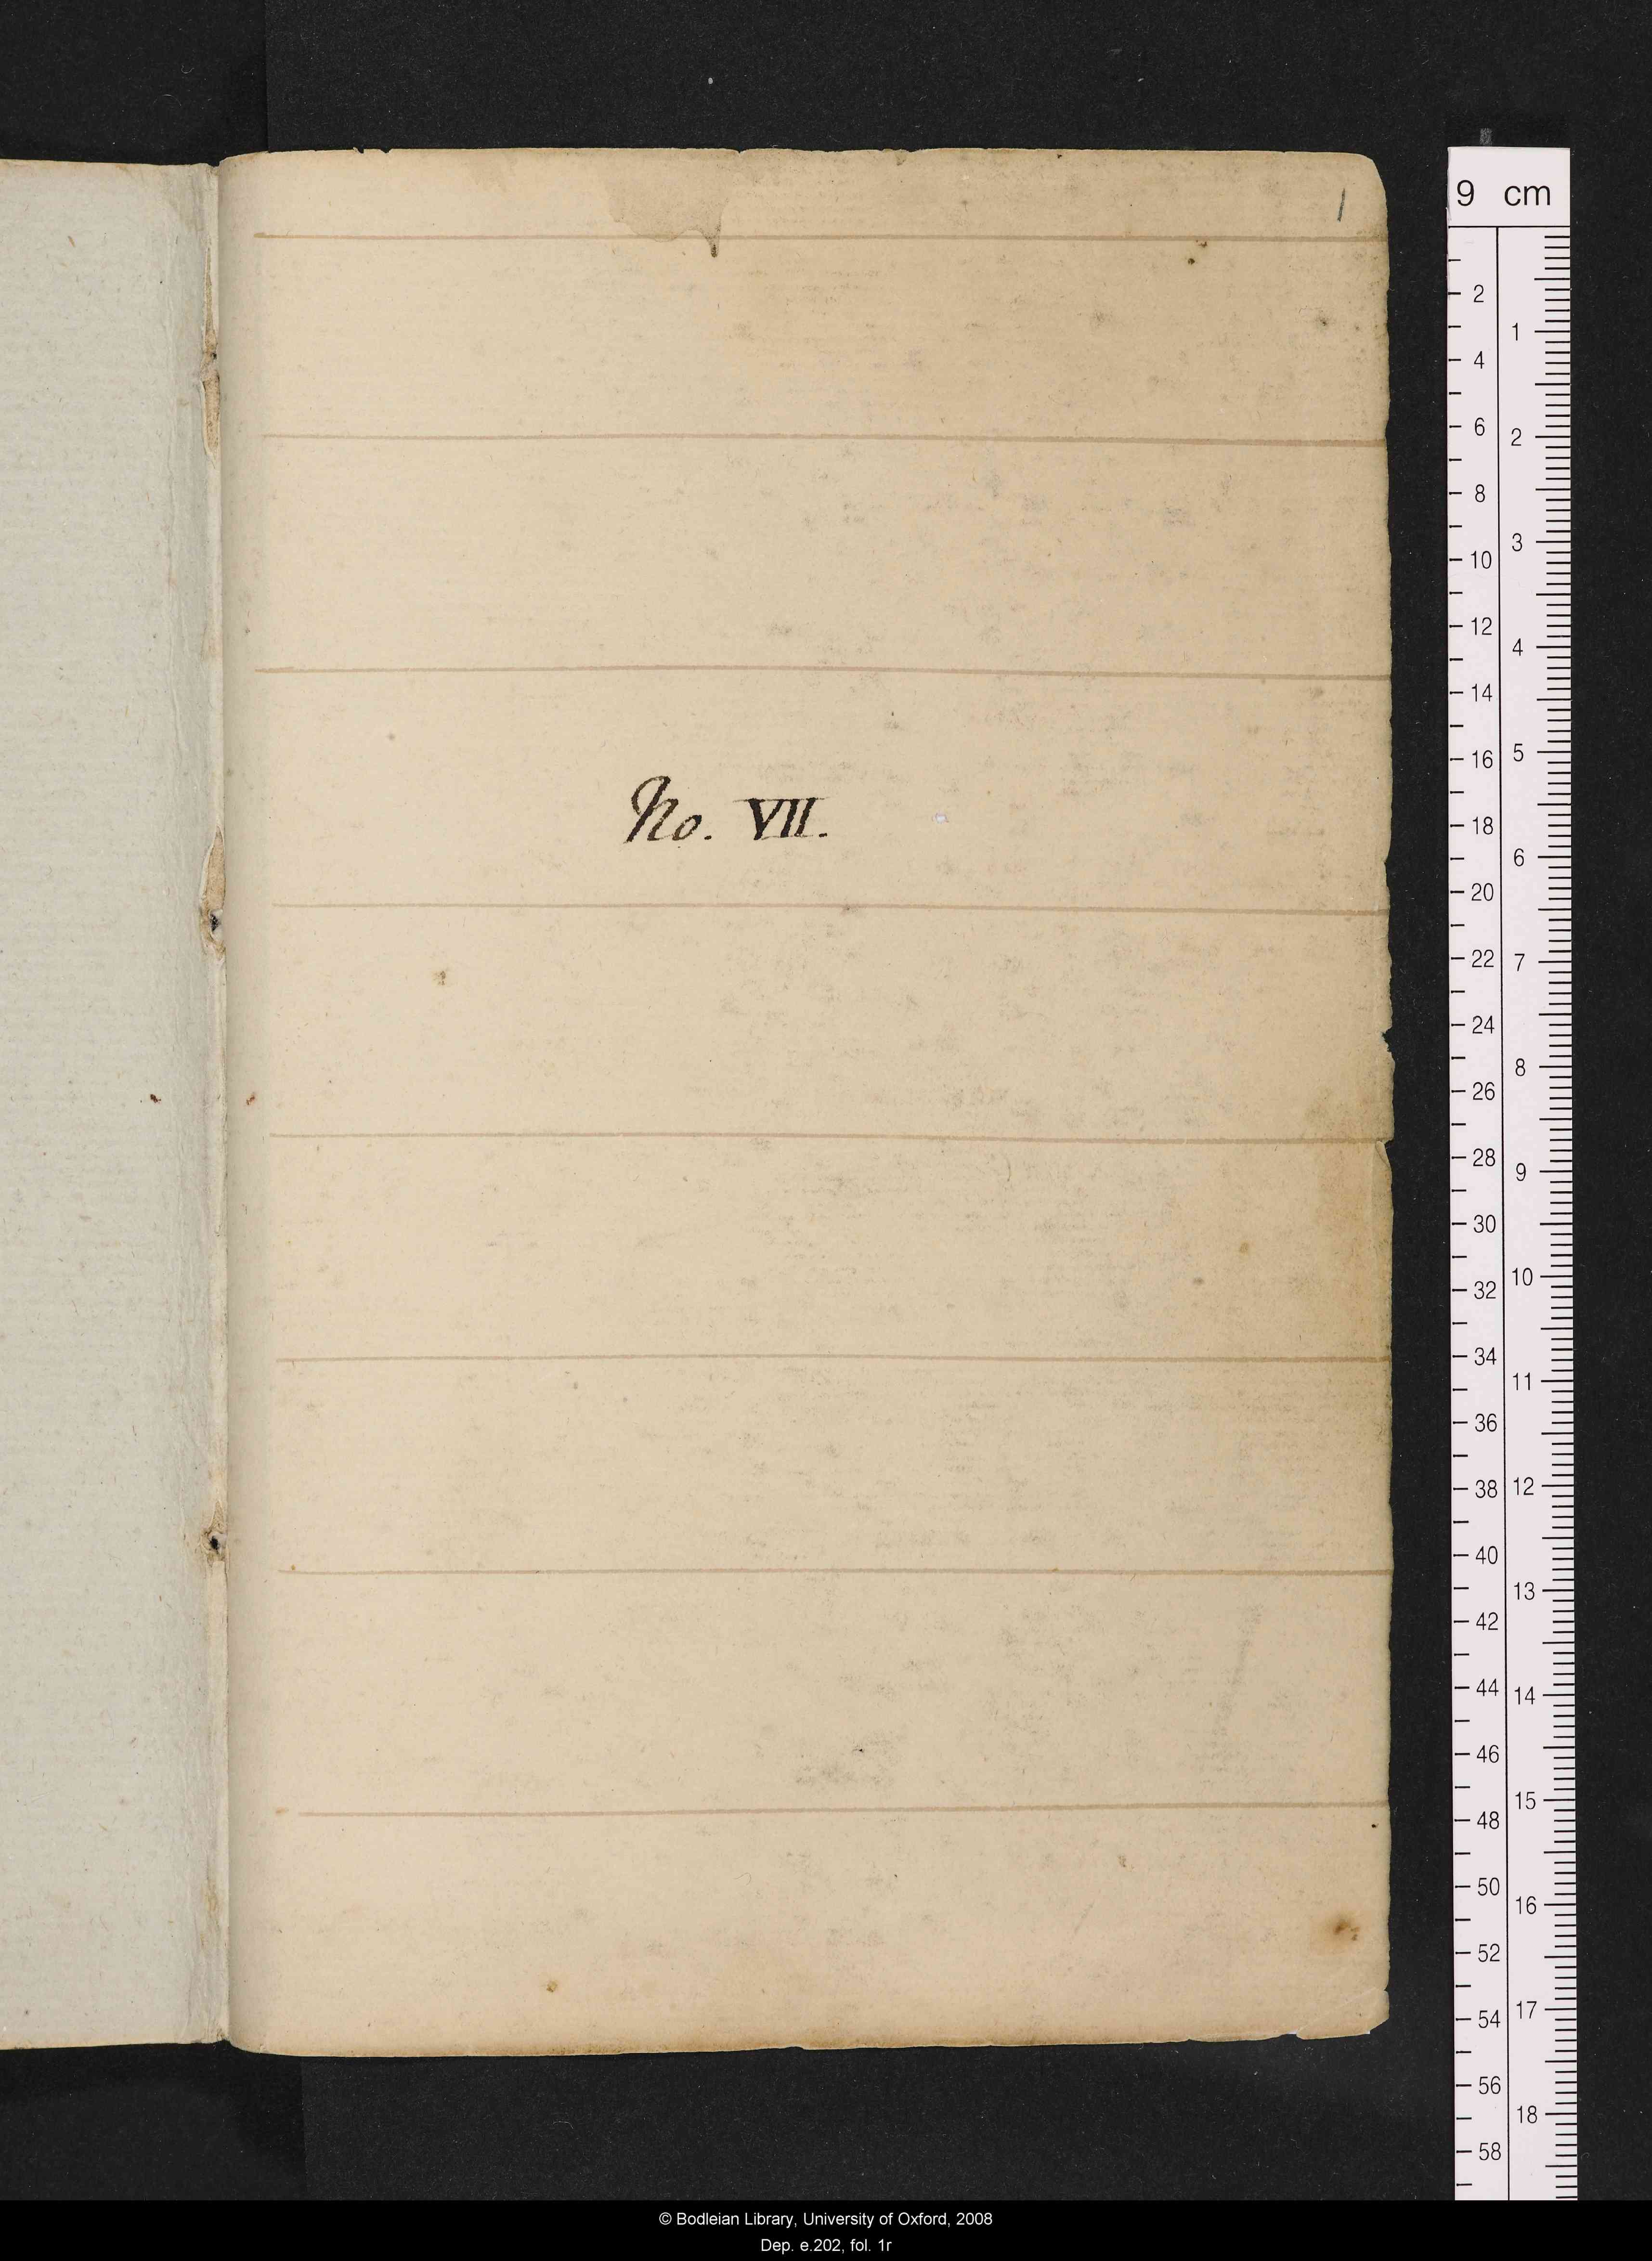 1
No. VII.
9 cm
2
4
6
8
10
12
14
16
18
20
22
24
26
28
30
32
34
36
38
40
42
44
46
48
50
52
54
56
58
1
2
3
4
5
6
7
8
9
10
11
12
13
14
15
16
17
18
© Bodleian Library, University of Oxford, 2008
Dep. e.202, fol. 1r